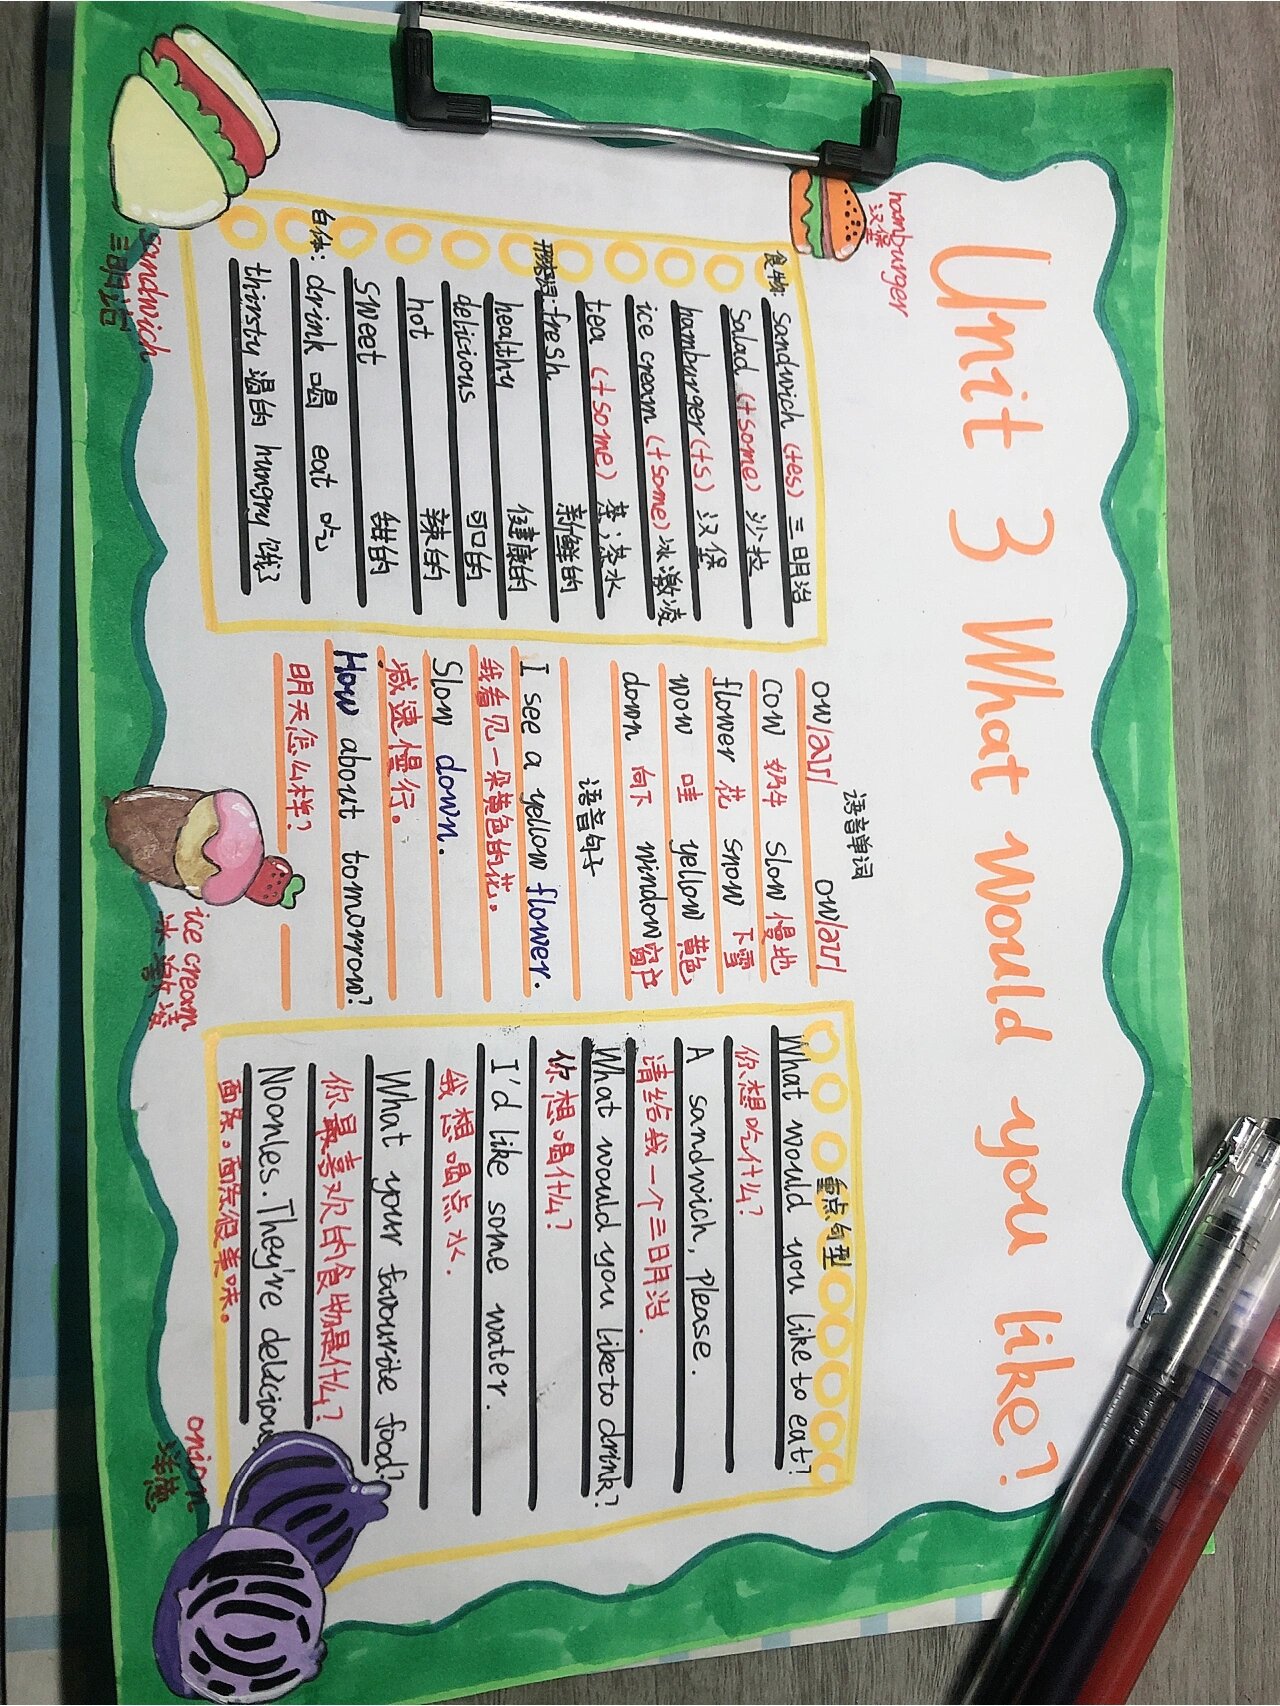 Unit 3 What would you like?
hamburger
汉堡
食物: sandwich (+es) 三明治
Salad (+some) 沙拉
hamburger (+s) 汉堡
ice cream (+some) 冰激凌
tea (+some) 茶;茶水
形容词: fresh 新鲜的
healthy 健康的
delicious 可口的
hot 辣的
sweet 甜的
drink 喝 eat 吃
thirsty 渴的 hungry 饿的
sandwich
三明治
语音单词
ow/aʊ/ ow/aʊ/
cow 奶牛 slow 慢地
flower 花 snow 下雪
wow 哇 yellow 黄色
down 向下 window 窗户
语音句子
I see a yellow flower.
我看见一朵黄色的花。
Slow down.
减速慢行。
How about tomorrow?
明天怎么样?
ice cream
冰激凌
重点句型
What would you like to eat?
你想吃什么?
A sandwich, please.
请给我一个三明治.
What would you like to drink?
你想喝什么?
I'd like some water.
我想喝点水.
What your favourite food?
你最喜欢的食物是什么?
Noonles. They're delicious.
面条。面条很美味。
onion
洋葱